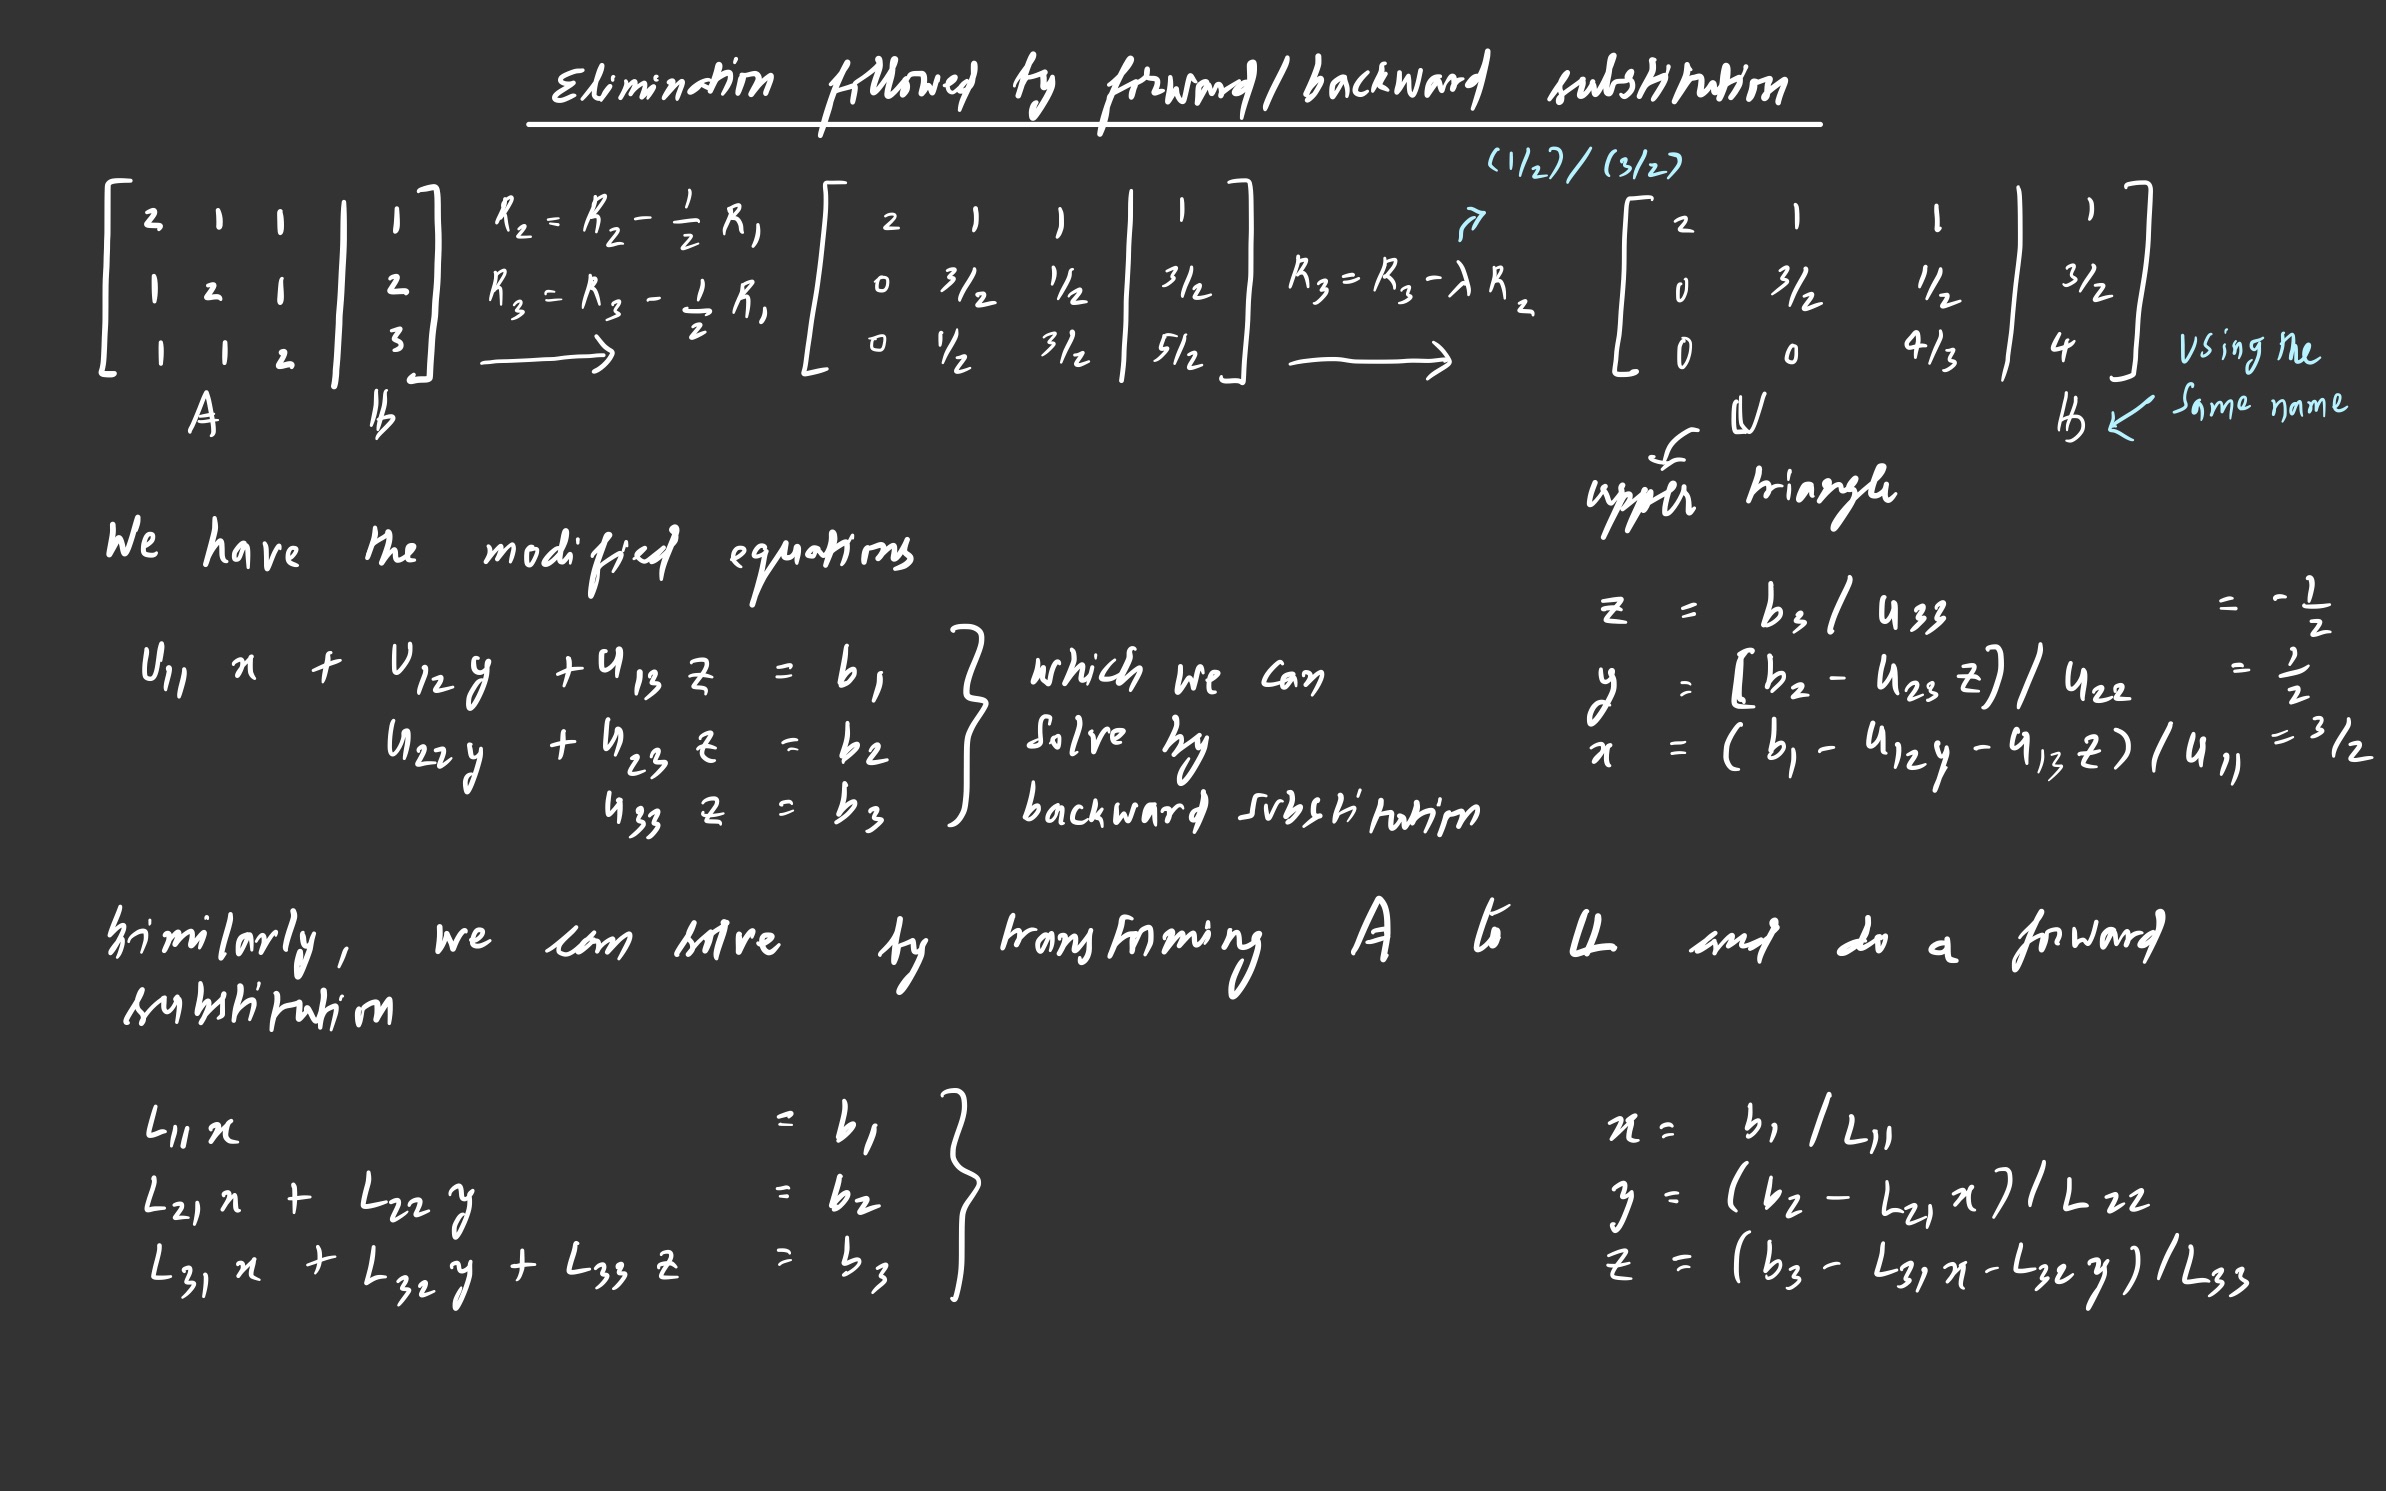 Elimination followed by forward/backward substitution
(1/2)/(3/2)
[ 2 1 1 | 1 ] R2 = R2 - 1/2 R1 [ 2 1 1 | 1 ] [ 2 1 1 | 1 ]
[ 1 2 1 | 2 ] R3 = R3 - 1/2 R1 [ 0 3/2 1/2 | 3/2 ] R3 = R3 - λ R2 [ 0 3/2 1/2 | 3/2 ]
[ 1 1 2 | 3 ] → [ 0 1/2 3/2 | 5/2 ] → [ 0 0 4/3 | 4 ] using the
same name
A b U b
upper triangle
We have the modified equations
U11 x + U12 y + U13 z = b1
U22 y + U23 z = b2
U33 z = b3
which we can
solve by
backward substitution
z = b3 / U33 = -1/2
y = [b2 - U23 z) / U22 = 1/2
x = (b1 - U12 y - U13 z) / U11 = 3/2
Similarly, we can solve by transforming A to L and do a forward
substitution
L11 x = b1
L21 x + L22 y = b2
L31 x + L32 y + L33 z = b3
x = b1 / L11
y = (b2 - L21 x) / L22
z = (b3 - L31 x - L32 y) / L33